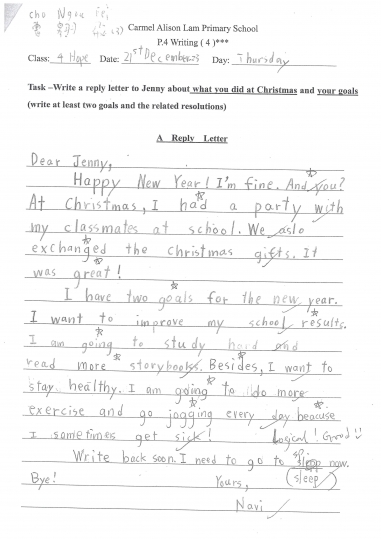 Carmel Alison Lam Primary School
P.4 Writing ( 4 )***
Class: 4 Hope Date: 21st December Day: Thursday
Task –Write a reply letter to Jenny about what you did at Christmas and your goals
(write at least two goals and the related resolutions)
A Reply Letter
Dear Jenny,
Happy New Year! I'm fine. And you?
At Christmas, I had a party with
my classmates at school. We aslo
exchanged the Christmas gifts. It
was great!
I have two goals for the new year.
I want to improve my school results.
I am going to study hard and
read more storybooks. Besides, I want to
stay healthy. I am going to do more
exercise and go jogging every day because
I sometimes get sick! Logical! Good
Write back soon. I need to go to sleep now.
Bye! Yours, (sleep)
Navi